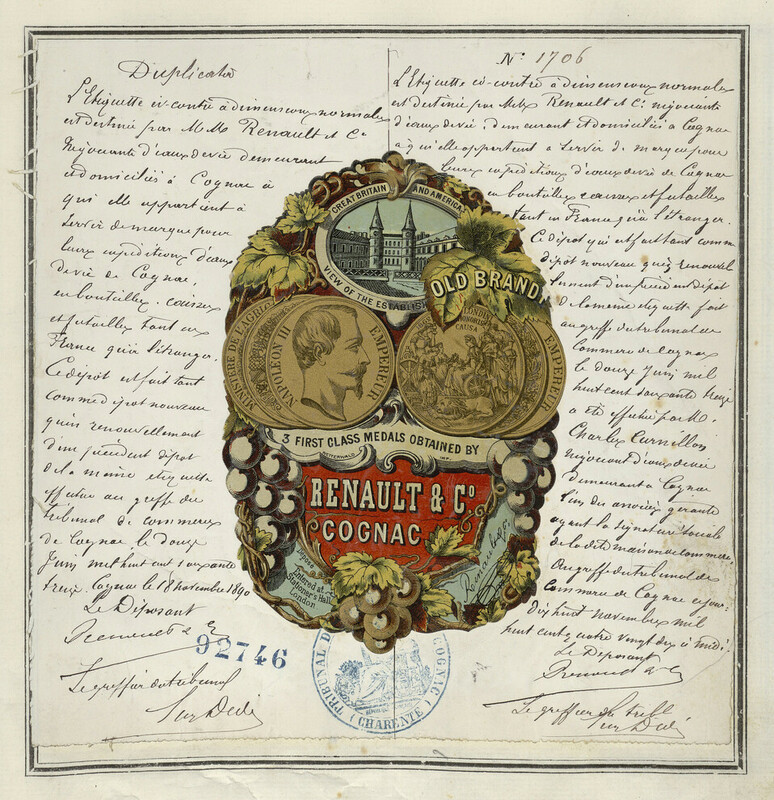 Duplicata
L'Etiquette ci-contre à dimensions normales
est destinée par M.Ms Renault et Cie
Négociants d'eaux de vie demeurant
et domiciliés à Cognac à
qui elle appartient à
servir de marque pour
leurs expéditions d'eaux
de vie de Cognac,
en bouteilles, caisses
et futailles tant en
France qu'à l'étranger.
Ce dépôt est fait tant
comme dépôt nouveau
qu'en renouvellement
d'un précédent dépôt
de la même étiquette
effectué au greffe du
tribunal de commerce
de Cognac le douze
Juin mil huit cent soixante
treize. Cognac le 18 novembre 1890
Le Déposant
Renault & Co
92746
Le greffier du tribunal
N° 1706
L'Etiquette ci-contre à dimensions normales
est destinée par MMs Renault et Cie négociants
d'eaux de vie, demeurant et domiciliés à Cognac
à qui elle appartient à servir de marque pour
leurs expéditions d'eaux de vie de Cognac
en bouteilles caisses et futailles
tant en France qu'à l'étranger.
Ce dépôt qui est fait tant comme
dépôt nouveau qu'en renouvel
lement d'un précédent dépôt
de la même étiquette fait
au greffe du tribunal de
Commerce de Cognac
le douze Juin mil
huit cent soixante treize
a été effectué par M.
Charles Cornillon
négociant d'eaux de vie
demeurant à Cognac
l'un des associés gérants
ayant la signature sociale
de la dite maison de commerce.
Au greffe du tribunal de
Commerce de Cognac ce jour
dix huit novembre mil
huit cent quatre vingt dix à midi.
Le Déposant
Renault & Co
Le greffier du tribl
GREAT BRITAIN AND AMERICA
VIEW OF THE ESTABLISH
OLD BRANDY
MINISTERE DE L'AGRIC
NAPOLEON III EMPEREUR
LONDON
HONORIS
CAUSA
EMPEREUR
3 FIRST CLASS MEDALS OBTAINED BY
RENAULT & Co
COGNAC
Entered at
Stationer's Hall
London
Renault & Co
TRIBUNAL D COGNAC
(CHARENTE)